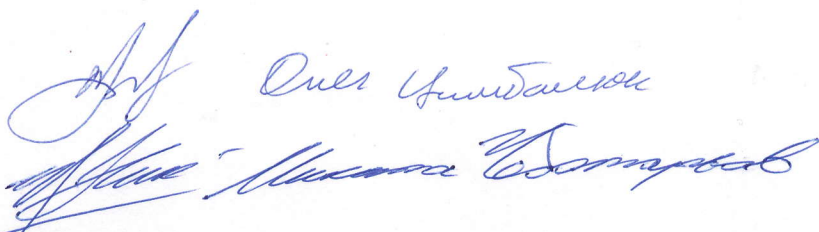 Олег Цимбалюк
Микита Чеботарьов